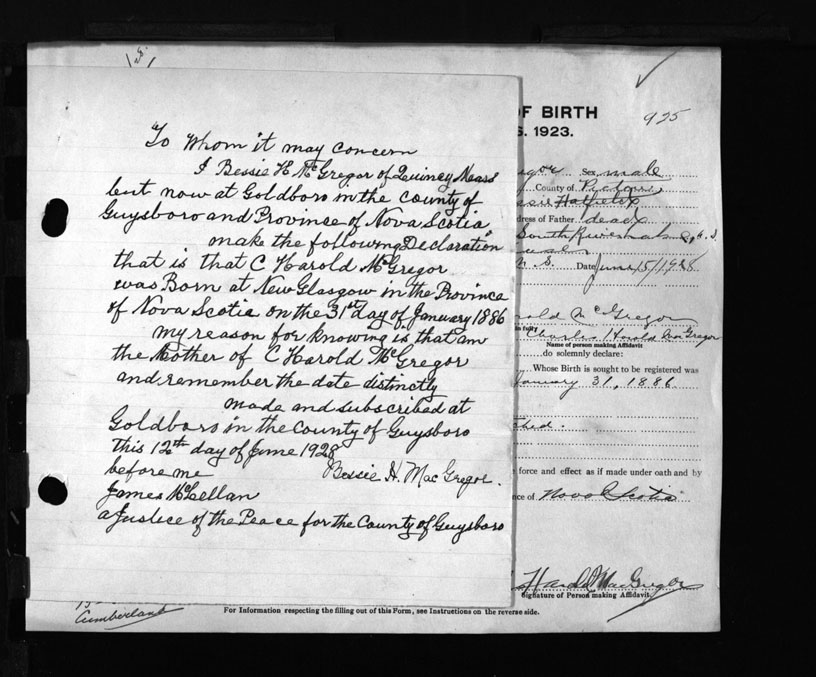 To Whom it may concern
I Bessie H McGregor of Quincy Mass
but now at Goldboro in the county of
Guysboro and Province of Nova Scotia
make the following Declaration
that is that C Harold McGregor
was Born at New Glasgow in the Province
of Nova Scotia on the 31st day of January 1886
my reason for knowing is that am
the Mother of C Harold McGregor
and remember the date distinctly
made and subscribed at
Goldboro in the County of Guysboro
this 12th day of June 1928
before me Bessie H. MacGregor.
James McLellan
a Justice of the Peace for the County of Guysboro
OF BIRTH
925
S. 1923.
gor Sex male
County of Pictou
Hatfield
dress of Father dead
South River
N. S. Date June 15/1928
Harold McGregor
in full) Charles Harold MacGregor
Name of person making Affidavit
do solemnly declare:
Whose Birth is sought to be registered was
January 31, 1886
ched.
force and effect as if made under oath and by
nce of Nova Scotia
Harold MacGregor
Signature of Person making Affidavit.
15
Cumberland
For Information respecting the filling out of this Form, see Instructions on the reverse side.